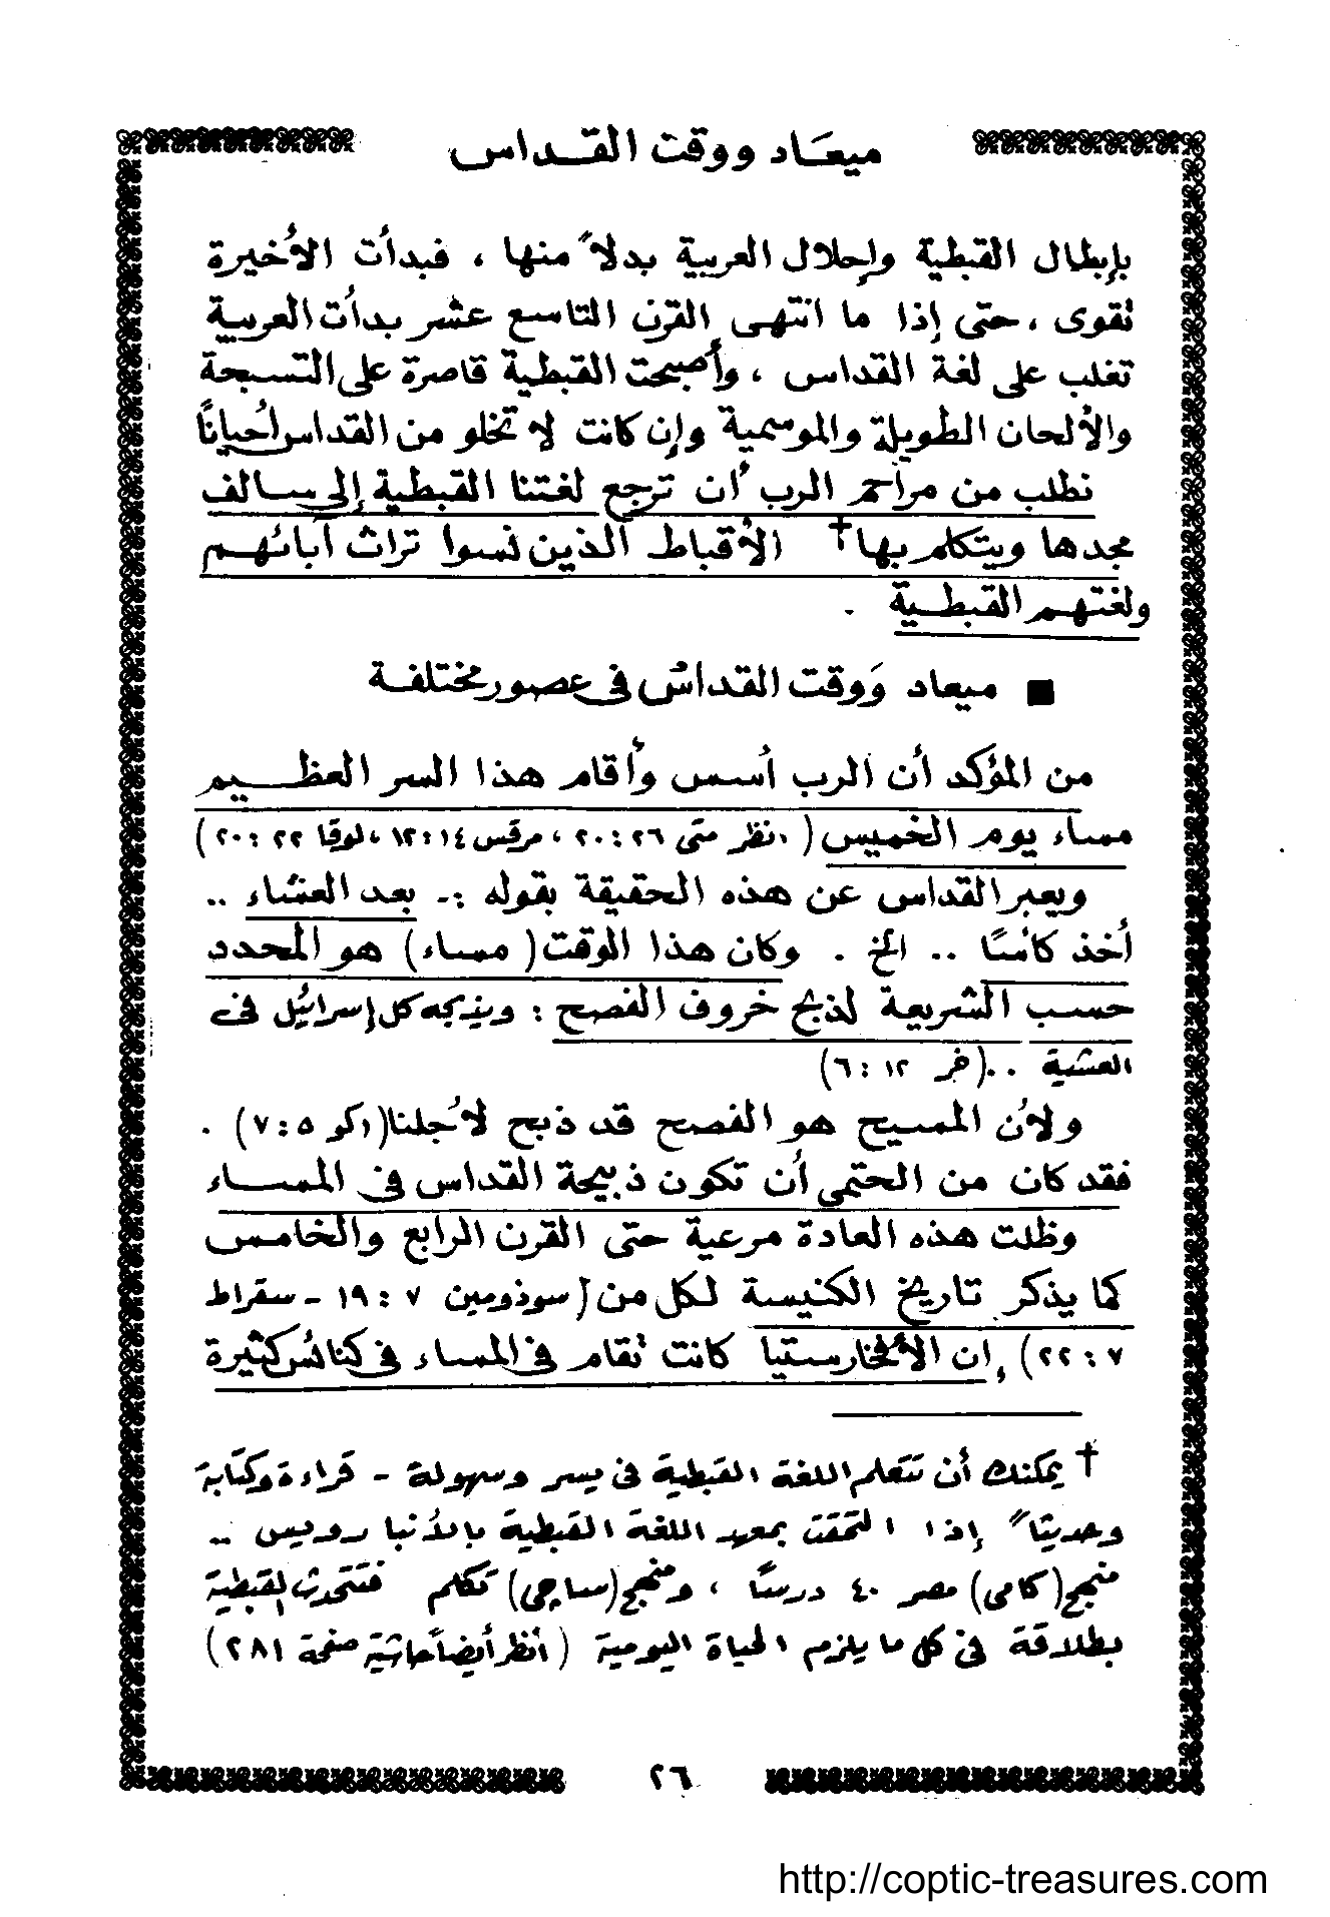 ميعاد ووقت القداس
بإبطال القبطية وإحلال العربية بدلاً منها ، فبدأت الأخيرة
تقوى ، حتى إذا ما انتهى القرن التاسع عشر بدأت العربية
تغلب على لغة القداس ، وأصبحت القبطية قاصرة على التسبحة
والألحان الطويلة والموسمية وإن كانت لا تخلو من القداس أحياناً
نطلب من مراحم الرب أن ترجع لغتنا القبطية إلى سالف
مجدها ويتكلم بها † الأقباط الذين نسوا تراث آبائهم
ولغتهم القبطية .
■ ميعاد ووقت القداس في عصور مختلفة
من المؤكد أن الرب أسس وأقام هذا السر العظيم
مساء يوم الخميس ( انظر متى ٢٦ : ٢٠ ، مرقس ١٤ : ١٢ ، لوقا ٢٢ : ٢٠ )
ويعبر القداس عن هذه الحقيقة بقوله :ـ بعد العشاء ..
أخذ كأسًا .. الخ . وكان هذا الوقت ( مساء ) هو المحدد
حسب الشريعة لذبح خروف الفصح : ويذبحه كل إسرائيل في
العشية .. ( خر ١٢ : ٦ )
ولأن المسيح هو الفصح قد ذبح لأجلنا ( ١كو ٥ : ٧ ) .
فقد كان من الحتمى أن تكون ذبيحة القداس في المساء
وظلت هذه العادة مرعية حتى القرن الرابع والخامس
كما يذكر تاريخ الكنيسة لكل من [ سوذومين ٧ : ١٩ - سقراط
٧ : ٢٢ ) إن الأفخارستيا كانت تقام في المساء في كنائس كثيرة
† يمكنك أن تتعلم اللغة القبطية في يسر وسهولة - قراءة وكتابة
وحديثاً إذا التحقت بمعهد اللغة القبطية بالأنبا رويس ..
منهج ( كامى ) مصر ٤٠ درسًا ، ومنهج ( ساچى ) تكلم فتتحدث القبطية
بطلاقة في كل ما يلزم الحياة اليومية ( أنظر أيضاً حاشية صفحة ٢٨١ )
٢٦
http://coptic-treasures.com